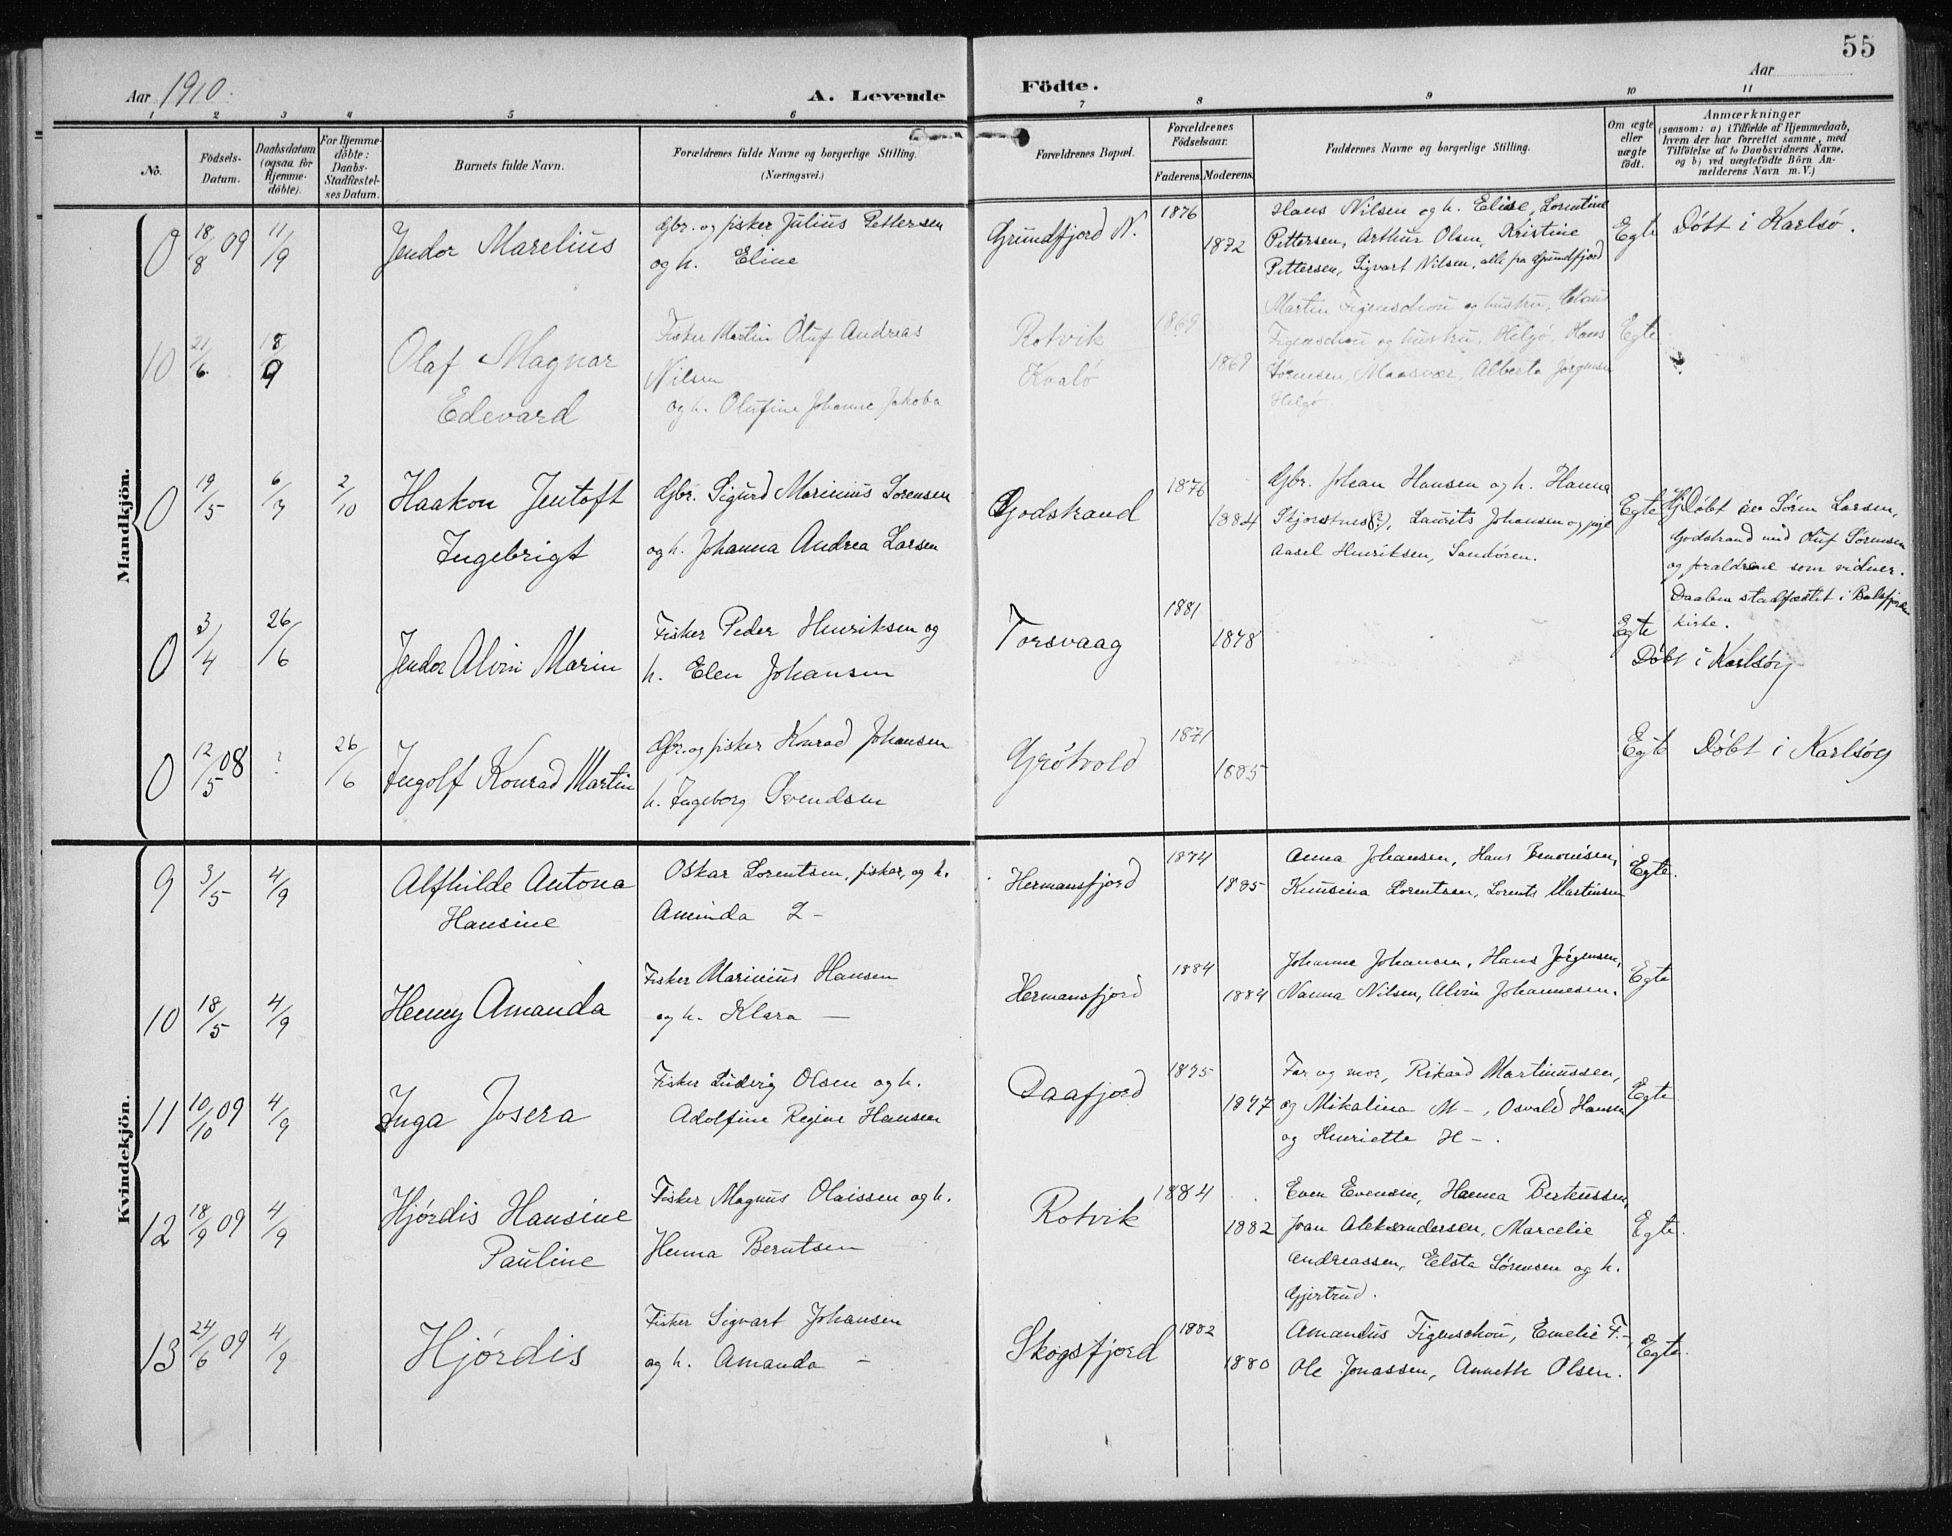 55
Aar 1910.
A. Levende Födte.
Aar
1 2 3 4 5 6 7 8 9 10 11
No.
Födsels-Datum.
Daabsdatum (ogsaa for Hjemme-döbte).
For Hjemme-döbte: Daabs-Stadfæstel-ses Datum.
Barnets fulde Navn.
Forældrenes fulde Navne og borgerlige Stilling.
(Næringsvei.)
Forældrenes Bopæl.
Forældrenes Födselsaar.
Faderens. Moderens.
Faddernes Navne og borgerlige Stilling.
Om ægte eller uægte födt.
Anmærkninger
(saasom: a) i Tilfælde af Hjemmedaab, hvem der har forrettet samme, med Tilföielse af to Daabsvidners Navne, og b) ved uægtefödte Börn An-melderens Navn m. V.)
Mandkjön.
0 18/8 09 11/9 Jendor Marelius
Gbr. og fisker Julius Pettersen
og h. Eline
Grundfjord N. 1876 1872
Hans Nilsen og h. Elise, Lorentine
Pettersen, Arthur Olsen, Kristine
Pettersen, Sigvart Nilsen, alle fra Grundfjord
Egte Döbt i Karlsö.
10 21/6 18/9 Olaf Magnar
Edevard
Fisker Martin Oluf Andreas
Nilsen
og h. Olufine Johanne Jakoba
Rotvik
Kvalö
1869 1869
Martin Figenschou og hustru,
Figenschou og hustru, Helgö, Hans
Sörensen, Maasvær, Alberta Jörgensen
Helgö
Egte
0 19/5 6/7 2/10 Haakon Jentoft
Ingebrigt
Gbr. Sigurd Marinius Sorensen
og h. Johanna Andrea Larsen
Godstrand 1876 1884
Gbr. Johan Hansen og h. Hanna
Skjorstnes(?), Laurits Johansen og pige
Aasel Henriksen, Sandören.
Egte
Hj.Döbt av Sören Larsen,
Godstrand med Oluf Sörensen
og forældrene som vidner.
Daaben stadfæstet i Balsfjorden
kirke.
0 3/4 26/6 Jendor Alvin Marin
Fisker Peder Henriksen og
h. Elen Johansen
Torsvaag 1881 1878
Egte Döbt i Karlsöy
0 12/5 08 ? 26/6 Ingolf Konrad Martin
Gbr. og fisker Konrad Johansen
h. Ingeborg Svendsen
Grötvold 1871 1885
Egte Döbt i Karlsöy
Kvindekjön.
9 3/5 4/9 Alfhilde Antona
Hansine
Oskar Lorentsen, fisker, og h.
Aminda L-
Hermansfjord 1874 1885
Anna Johansen, Hans Benonisen,
Knusina Lorentssen, Lorents Martinsen
Egte.
10 18/5 4/9 Henny Amanda
Fisker Marinius Hansen
og h. Klara -
Hermansfjord 1884 1884
Johanne Johansen, Hans Jörgensen,
Nanna Nilsen, Alvin Johannesen.
Egte
11 10/10 09 4/9 Inga Josera
Fisker Ludvig Olsen og h.
Adolfine Regine Hansen
Daafjord 1875 1877
Far og mor, Rikard Martinussen,
og Mikalina M-, Osvald Hansen
og Henriette H-.
Egte
12 18/9 09 4/9 Hjördis Hansine
Pauline
Fisker Magnus Olaissen og h.
Henna Berntsen
Rotvik 1884 1882
Even Evensen, Hanna Berteussen,
Joan Aleksandersen, Marcelie
Andreassen, Elsta Sörensen og h.
Gjertrud.
Egte.
13 24/6 09 4/9 Hjördis
Fisker Sigvart Johansen
og h. Amanda -
Skogsfjord 1882 1880
Amandus Figenschou, Emelie F-,
Ole Jonassen, Annette Olsen.
Egte.